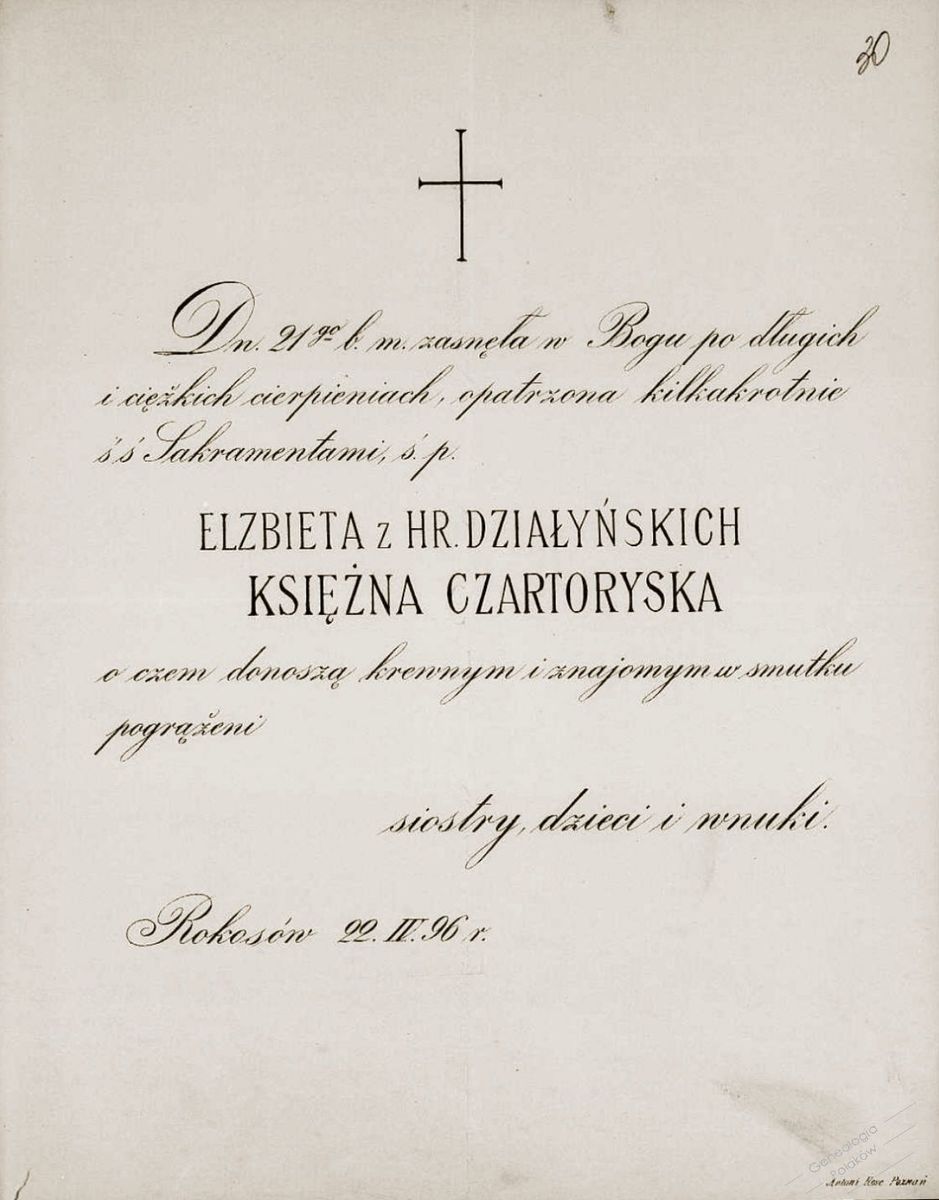 30
Dn. 21go b. m. zasnęła w Bogu po długich
i ciężkich cierpieniach, opatrzona kilkakrotnie
ś ś Sakramentami, ś. p.
ELZBIETA z HR. DZIAŁYŃSKICH
KSIĘŻNA CZARTORYSKA
o czem donoszą krewnym i znajomym w smutku
pogrążeni
siostry, dzieci i wnuki.
Rokosów 22. IV. 96 r.
Genealogia
Polaków
Antoni Rose Poznań